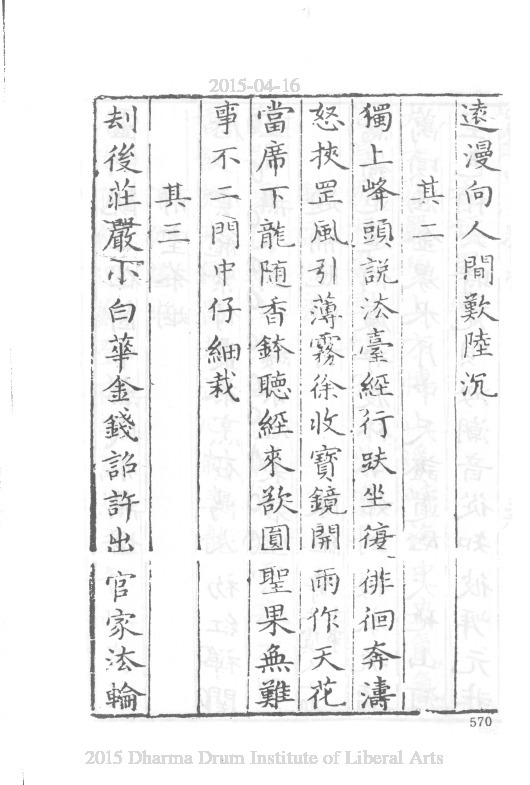 2015-04-16
遠漫向人間歎陸沉
其二
獨上峰頭說法臺經行趺坐復徘徊奔濤
怒挾罡風引薄霧徐收寶鏡開雨作天花
當席下龍随香鉢聽經來欲圓聖果無難
事不二門中仔細栽
其三
刦後莊嚴小白華金錢詔許出官家法輪
570
2015 Dharma Drum Institute of Liberal Arts